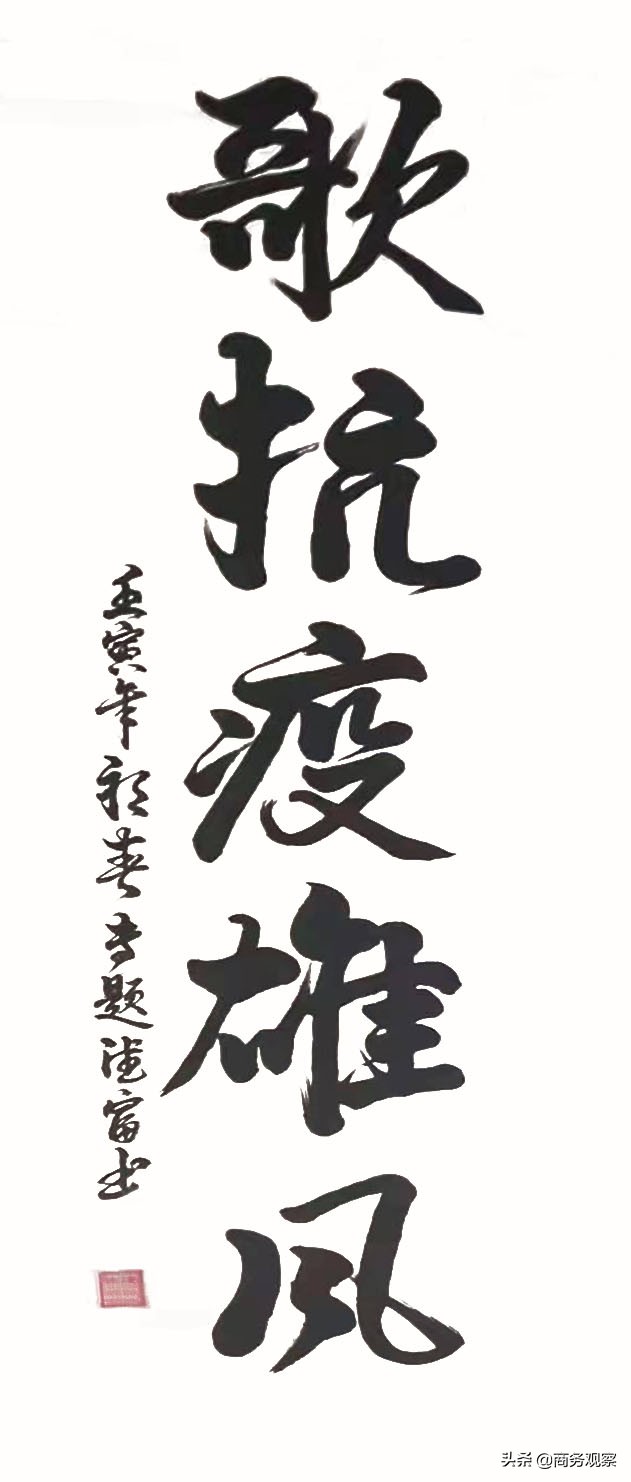 歌抗疫雄风
壬寅年初春专题德富书
头条 @商务观察